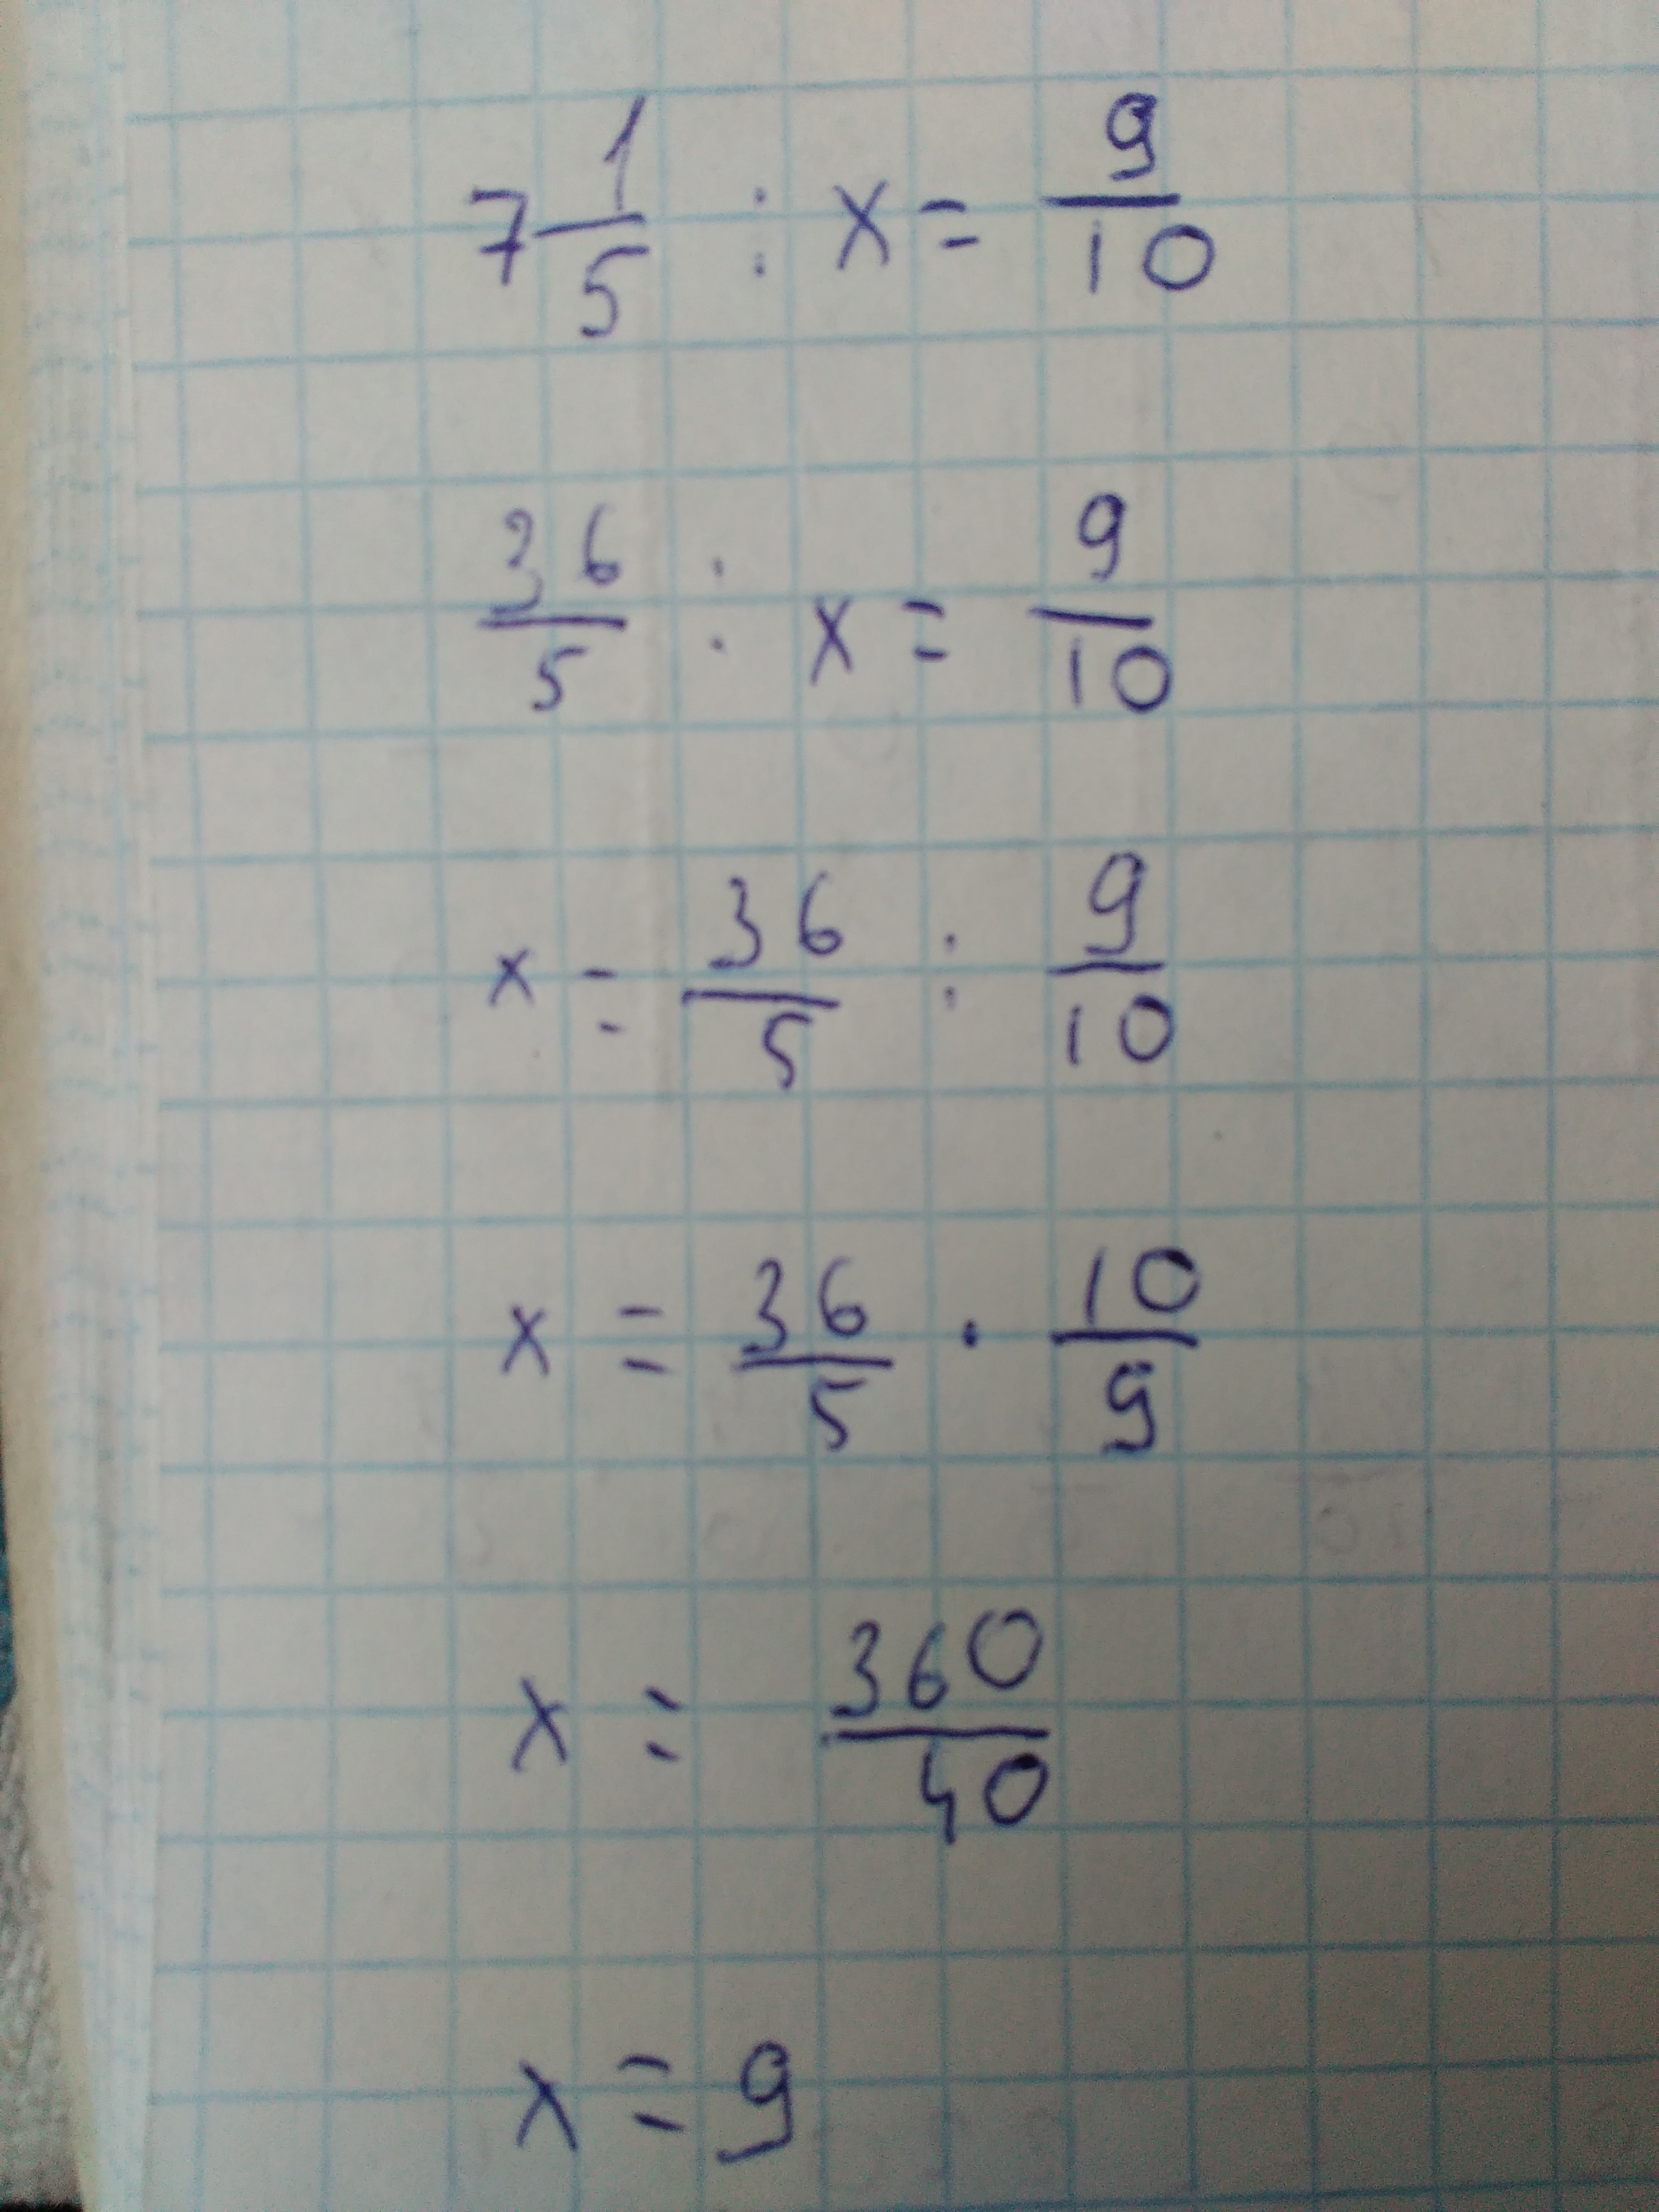 7 1/5 : x = 9/10
36/5 : x = 9/10
x = 36/5 : 9/10
x = 36/5 · 10/9
x = 360/40
x = 9